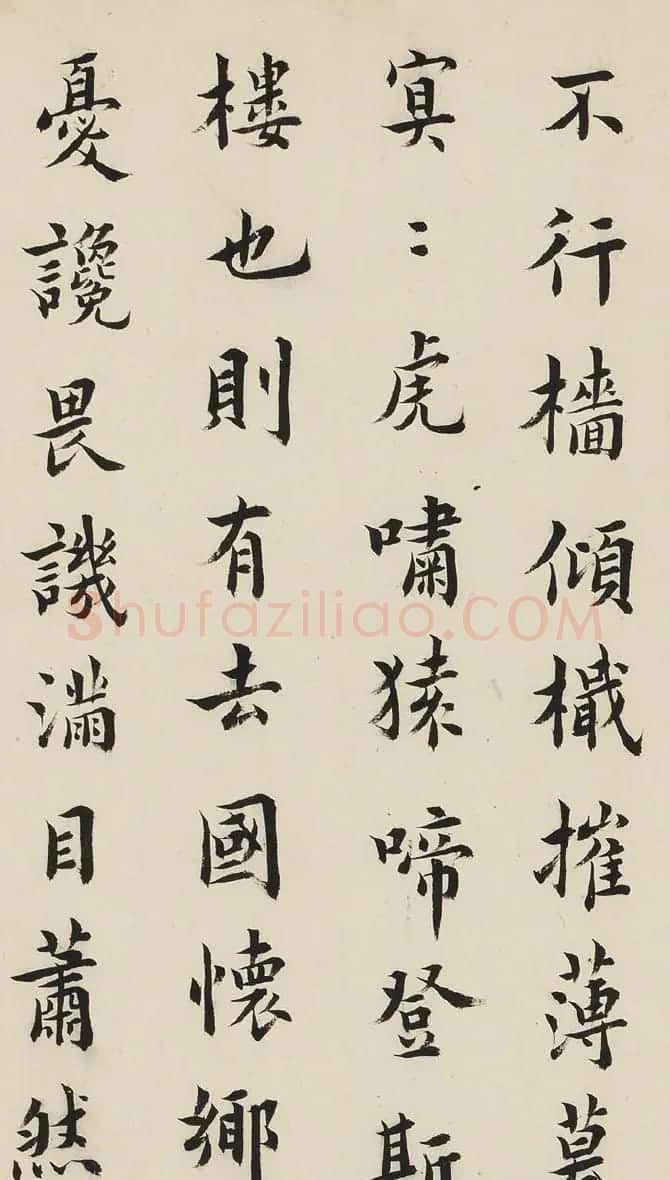 不行檣傾檝摧薄暮
冥〻虎嘯猿啼登斯
樓也則有去國懷鄉
憂讒畏譏滿目蕭然
Shufaziliao.COM